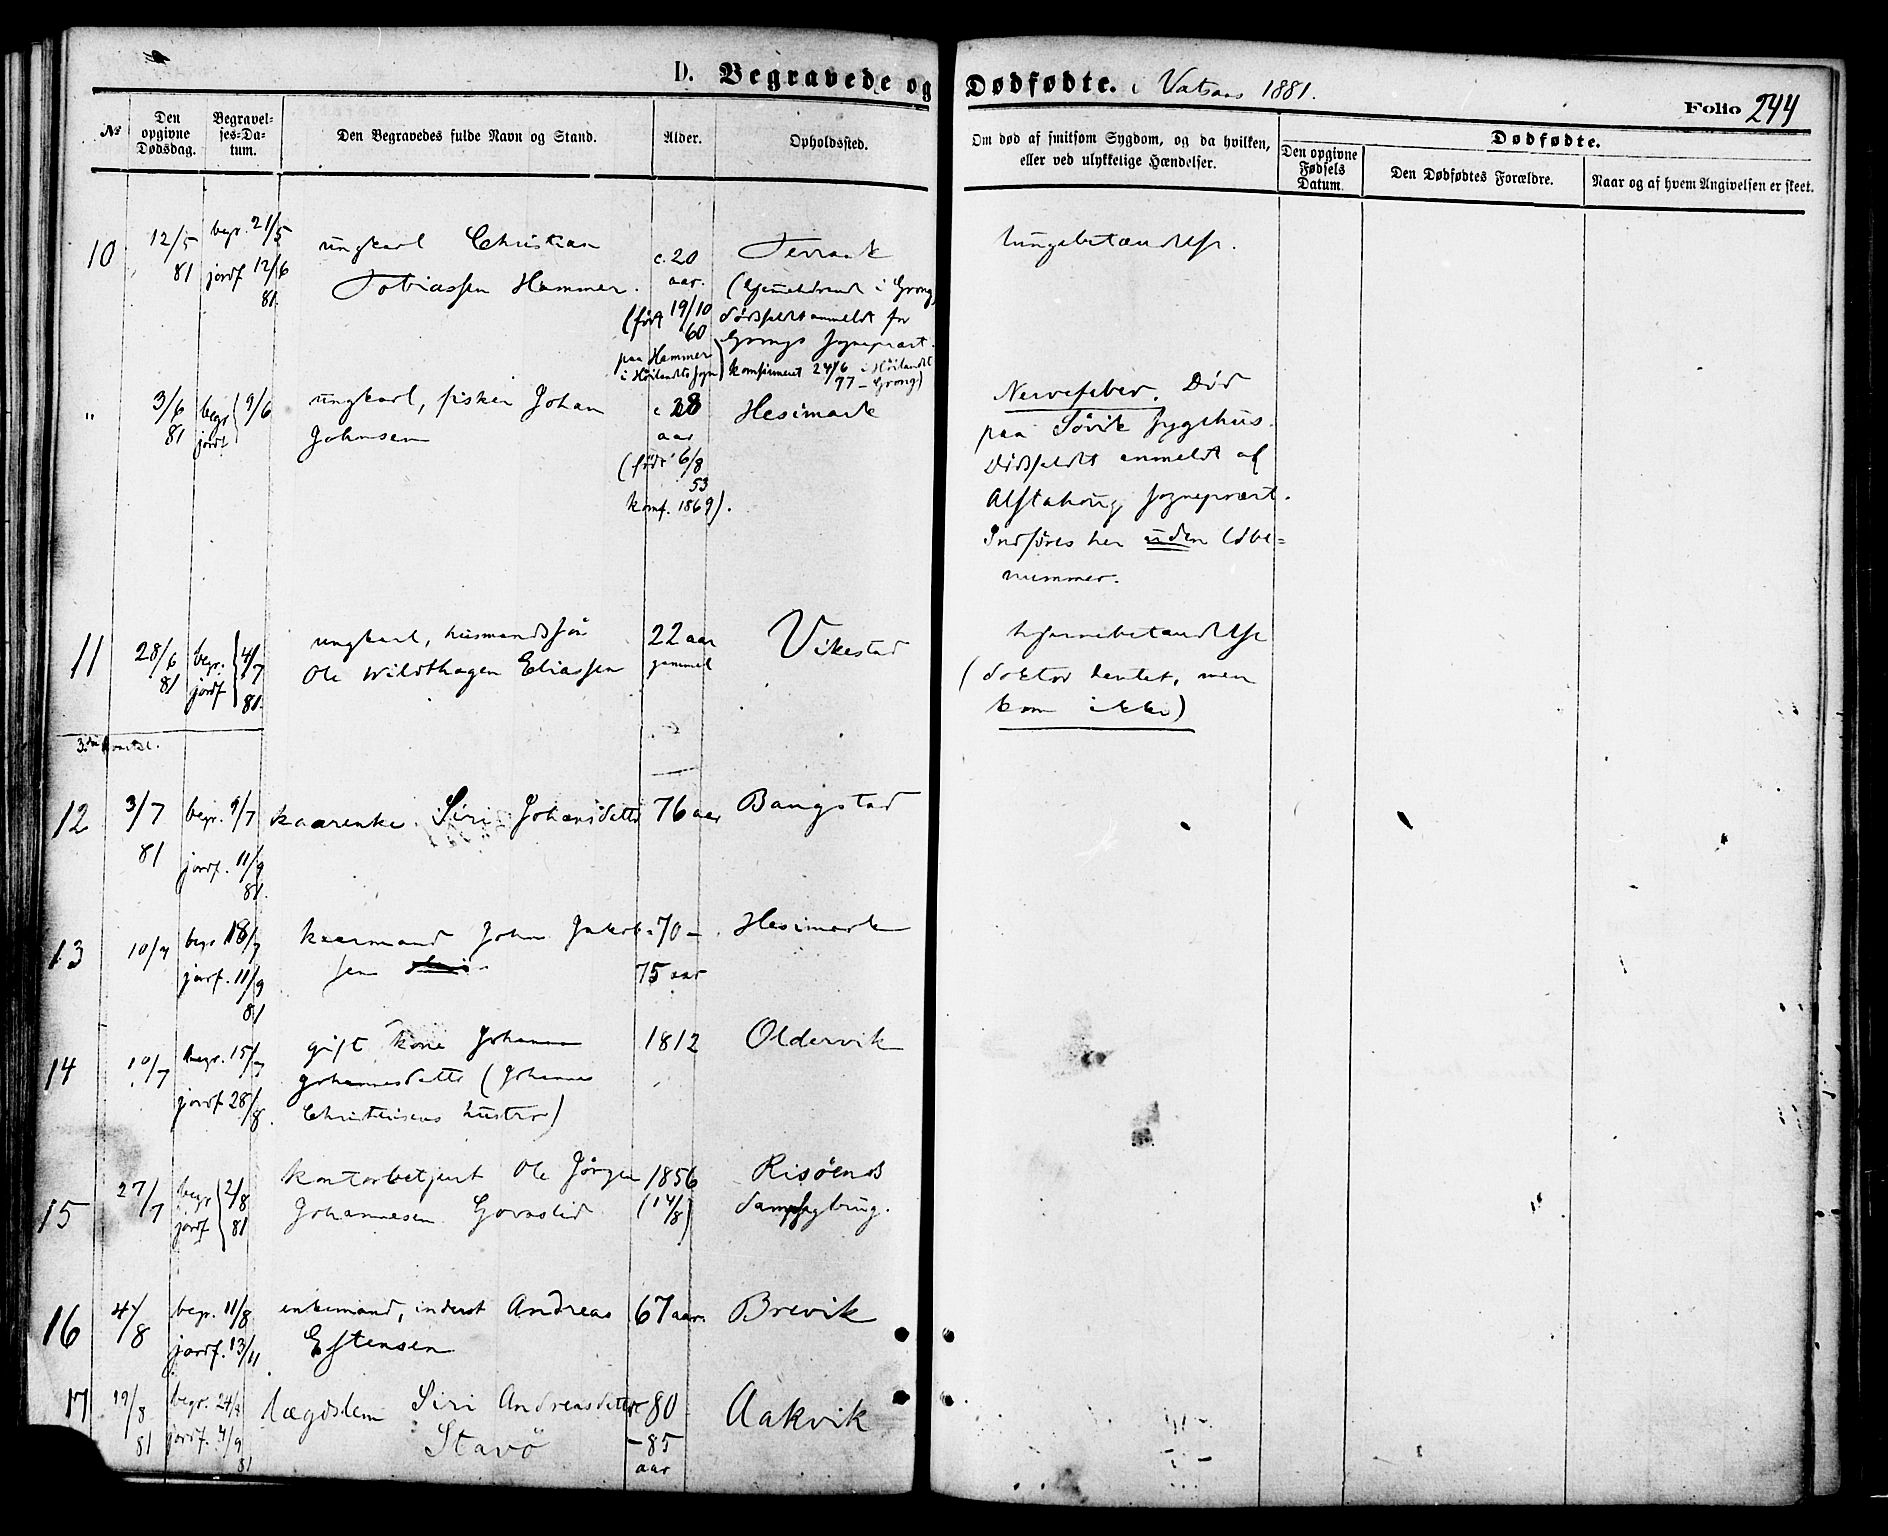 D. Begravede og Dødfødte. i Vatsaas 1881.
Folio 244
№
Den opgivne Dødsdag.
Begravelses-Datum.
Den Begravedes fulde Navn og Stand.
Alder.
Opholdssted.
Om død af smitsom Sygdom, og da hvilken,
eller ved ulykkelige Hændelser.
Dødfødte.
Den opgivne Fødsels Datum.
Den Dødfødtes Forældre.
Naar og af hvem Angivelsen er skeet.
10 12/5 81 begr. 21/5 jordf 12/6 81.
ungkarl Christian
Tobiassen Hammer.
c. 20 aar.
(født 19/10 60
paa Hammer
i Höilandets sogn)
Terraak
(hjemmehörende i Grong,
dödsfaldet anmeldt for
Grongs sognepræst.
konfirmeret 24/6 77 i Höilandet
- Grong)
lungebetændelse.
" 3/6 81 begr jordf } 9/6
ungkarl, fisker Johan
Johnsen
c 28 aar
(født 6/8 53
konf. 1869).
Hesimark
Nervefeber. Död
paa Søvik sygehus.
Dödsfaldet anmeldt af
Alstahoug sognepræst.
Indföres her uden löbe=
nummer.
11 28/6 81 begr. jordf } 4/7 81.
ungkarl, husmandssön
Ole Wildthagen Eliassen
22 aar
gammel
Vikestad
hjernebetændelse
(doktor hentet, men
kom ikke)
12 3/7 81 begr. 9/7 jordf. 11/9 81.
kaarenke Siri Johansdatter
76 aar
Bangstad
13 10/7 begr 18/7 jordf. 11/9 81
kaarmand John Jakob-
sen
70 -
75 aar
Hesimark
14 10/7 begr. 15/7 jordf 28/8.
gift kone Johanna
Johannesdatter (Johannes
Christensens hustro)
1812
Oldervik
15 27/7 begr jordf } 2/8 81
kontorbetjent Ole Jörgen
Johannesen
1856
(14/8)
Risöens
dampsagbrug.
16 4/8 begr. 11/8 jordf. 13/11
enkemand, inderst Andreas
Estensen
67 aar.
Brevik
17 19/8 81 begr. 24/8 jordf. 4/9 81
lægdslem Siri Andreasdatter
Stavö
80
- 85
aar
Aakvik